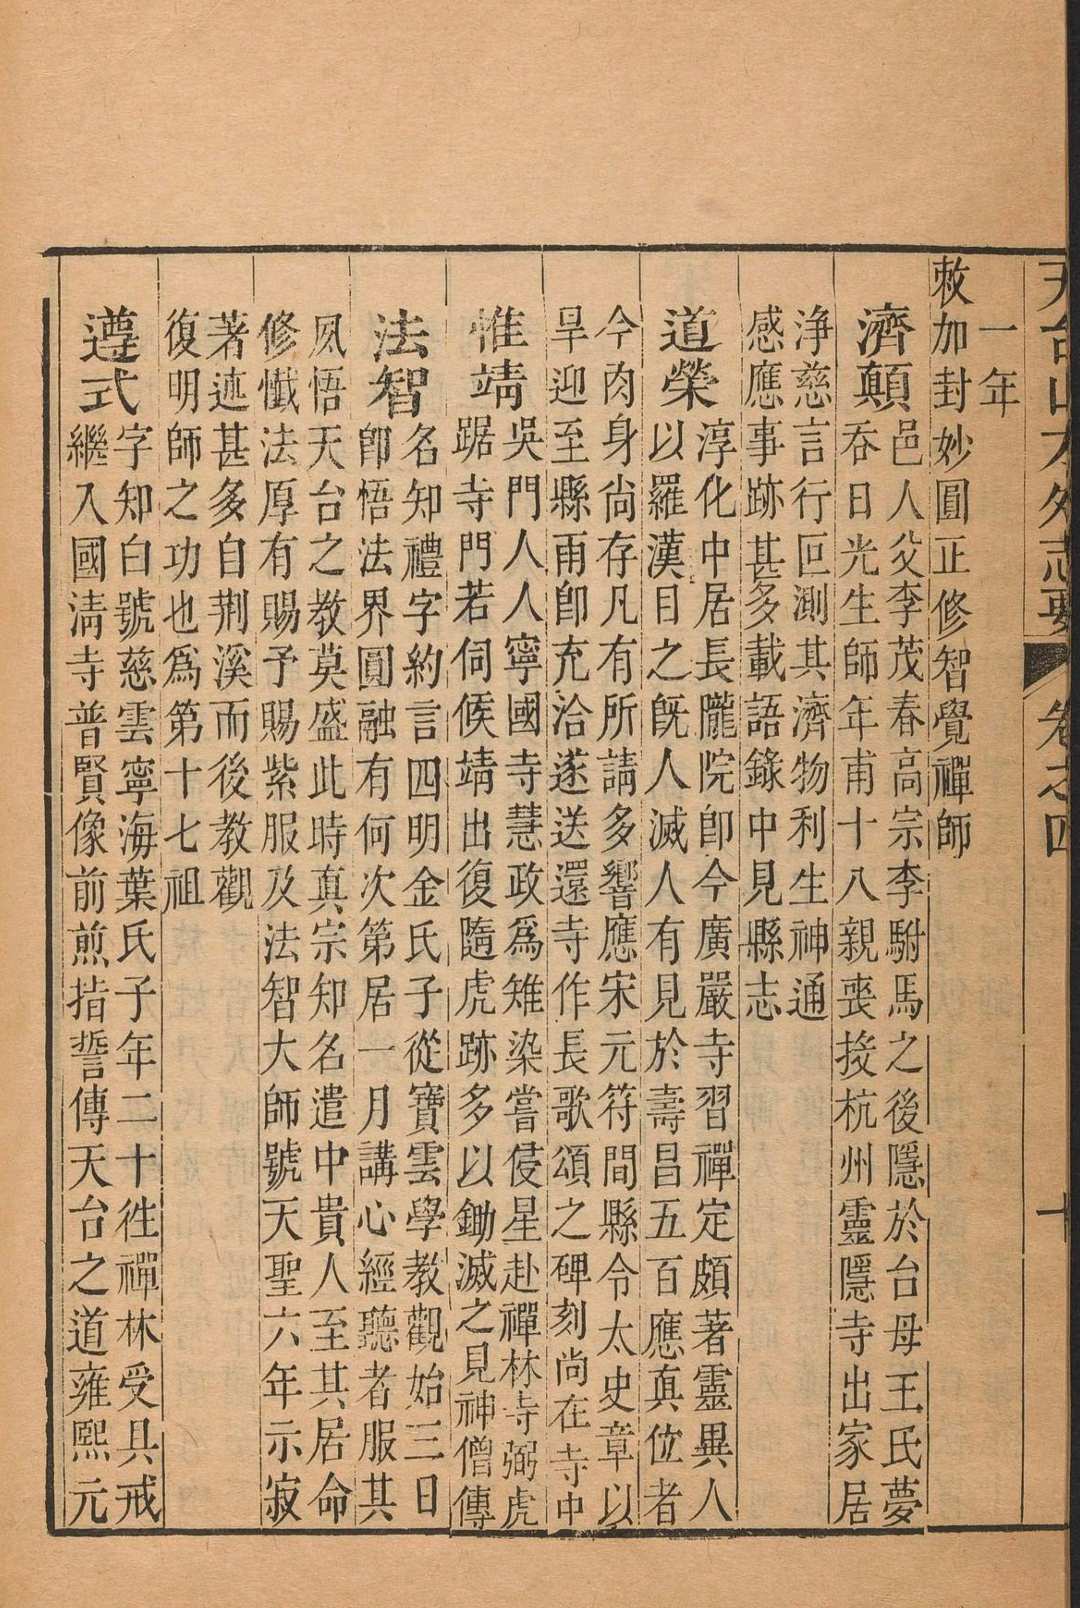 天台山方外志要 卷之四 十
一年
敕加封妙圓正修智覺禪師
濟顛 邑人父李茂春高宗李駙馬之後隱於台母王氏夢
吞日光生師年甫十八親喪投杭州靈隱寺出家居
淨慈言行叵測其濟物利生神通
感應事跡甚多載語錄中見縣志
道榮 淳化中居長隴院卽今廣嚴寺習禪定頗著靈異人
以羅漢目之旣人滅人有見於壽昌五百應眞位者
今肉身尚存凡有所請多響應宋元符間縣令太史章以
旱迎至縣雨卽充洽遂送還寺作長歌頌之碑刻尚在寺中
惟靖 吳門人人寧國寺慧政爲雉染嘗侵星赴禪林寺弼虎
踞寺門若伺候靖出復隨虎跡多以鋤滅之見神僧傳
法智 名知禮字約言四明金氏子從寶雲學教觀始三日
卽悟法界圓融有何次第居一月講心經聽者服其
夙悟天台之教莫盛此時眞宗知名遣中貴人至其居命
修懺法厚有賜予賜紫服及法智大師號天聖六年示寂
著述甚多自荆溪而後教觀
復明師之功也爲第十七祖
遵式 字知白號慈雲寧海葉氏子年二十徃禪林受具戒
繼入國淸寺普賢像前煎指誓傳天台之道雍熙元